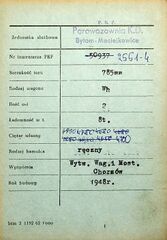 P. K. P.
Jednostka służbowa
Parowozownia K.D.
Bytom-Maciejkowice
Nr inwentarza PKP 50937 2551-4
Szerokość toru 785mm
Rodzaj wagonu Wh
Ilość osi 2
Ładowność w t. 8t.
Ciężar własny 4250 4250
Rodzaj hamulca ręczny
Wytwórnia Wytw. Wag. i Most.
Chorzów
Rok budowy 1948r.